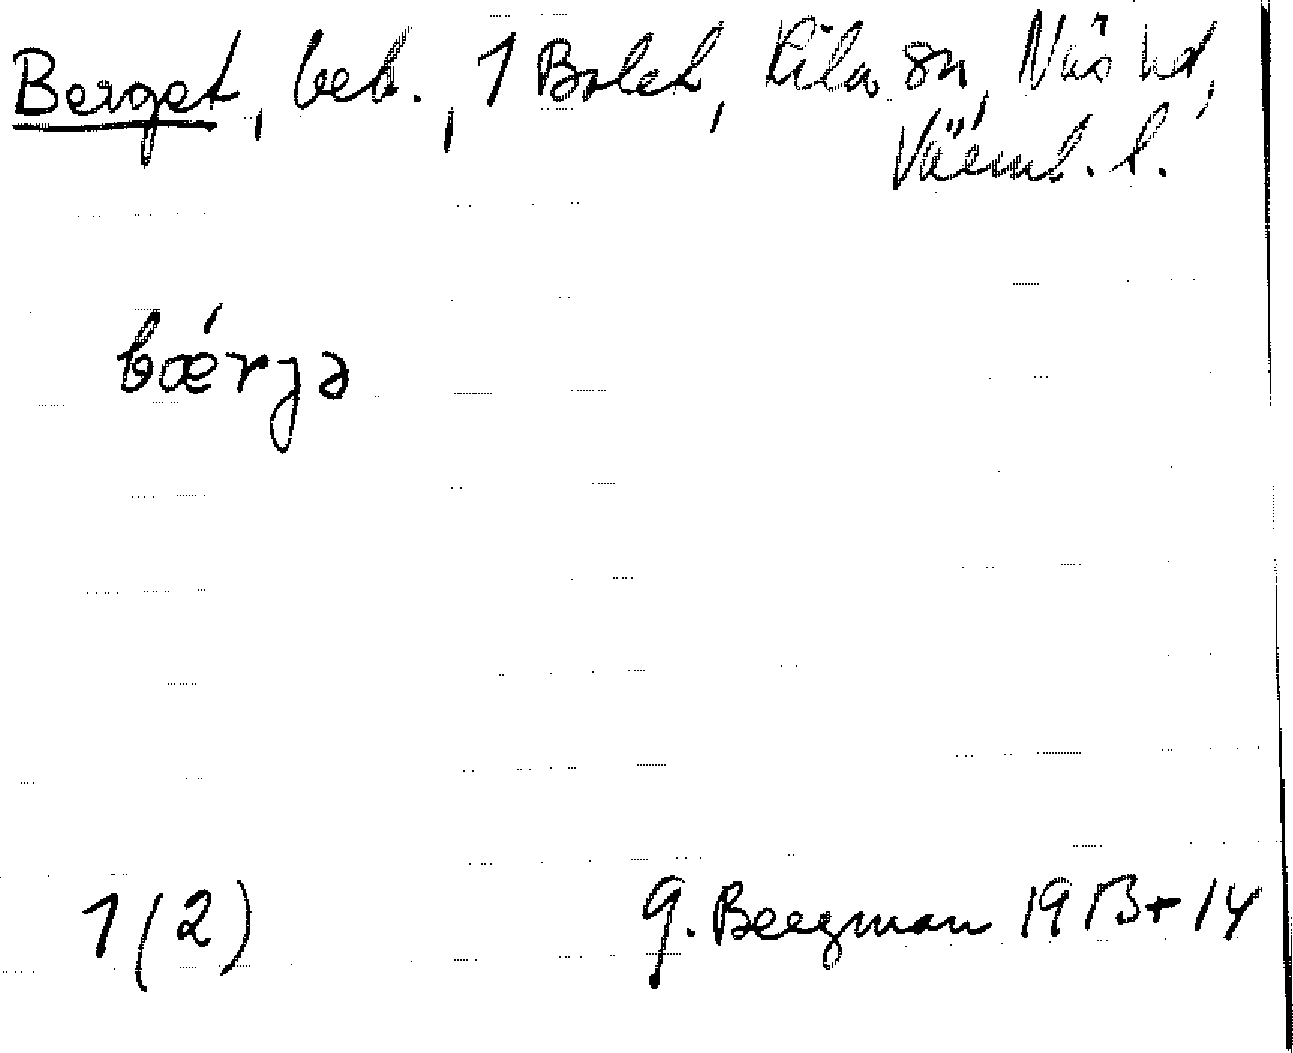 Berget, beb., 1 Bolet, Kila sn, Näs hd,
Värml. l.
bǽrjə
1 (2)
G. Bergman 1913+14